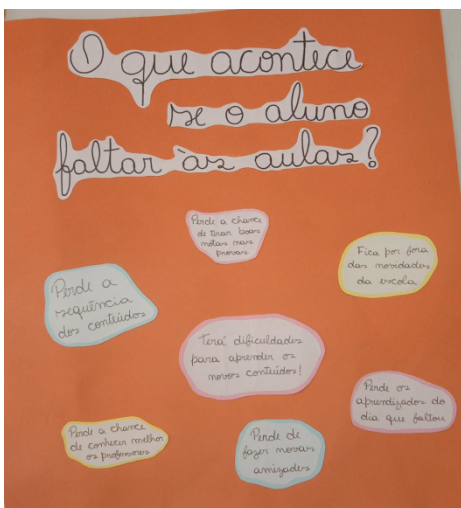 O que acontece
se o aluno
faltar às aulas?
Perde a chance
de tirar boas
notas nas
provas
Fica por fora
das novidades
da escola
Perde a
sequência
dos conteúdos
Terá dificuldades
para aprender os
novos conteúdos!
Perde os
aprendizados do
dia que faltou
Perde a chance
de conhecer melhor
os professores
Perde de
fazer novas
amizades